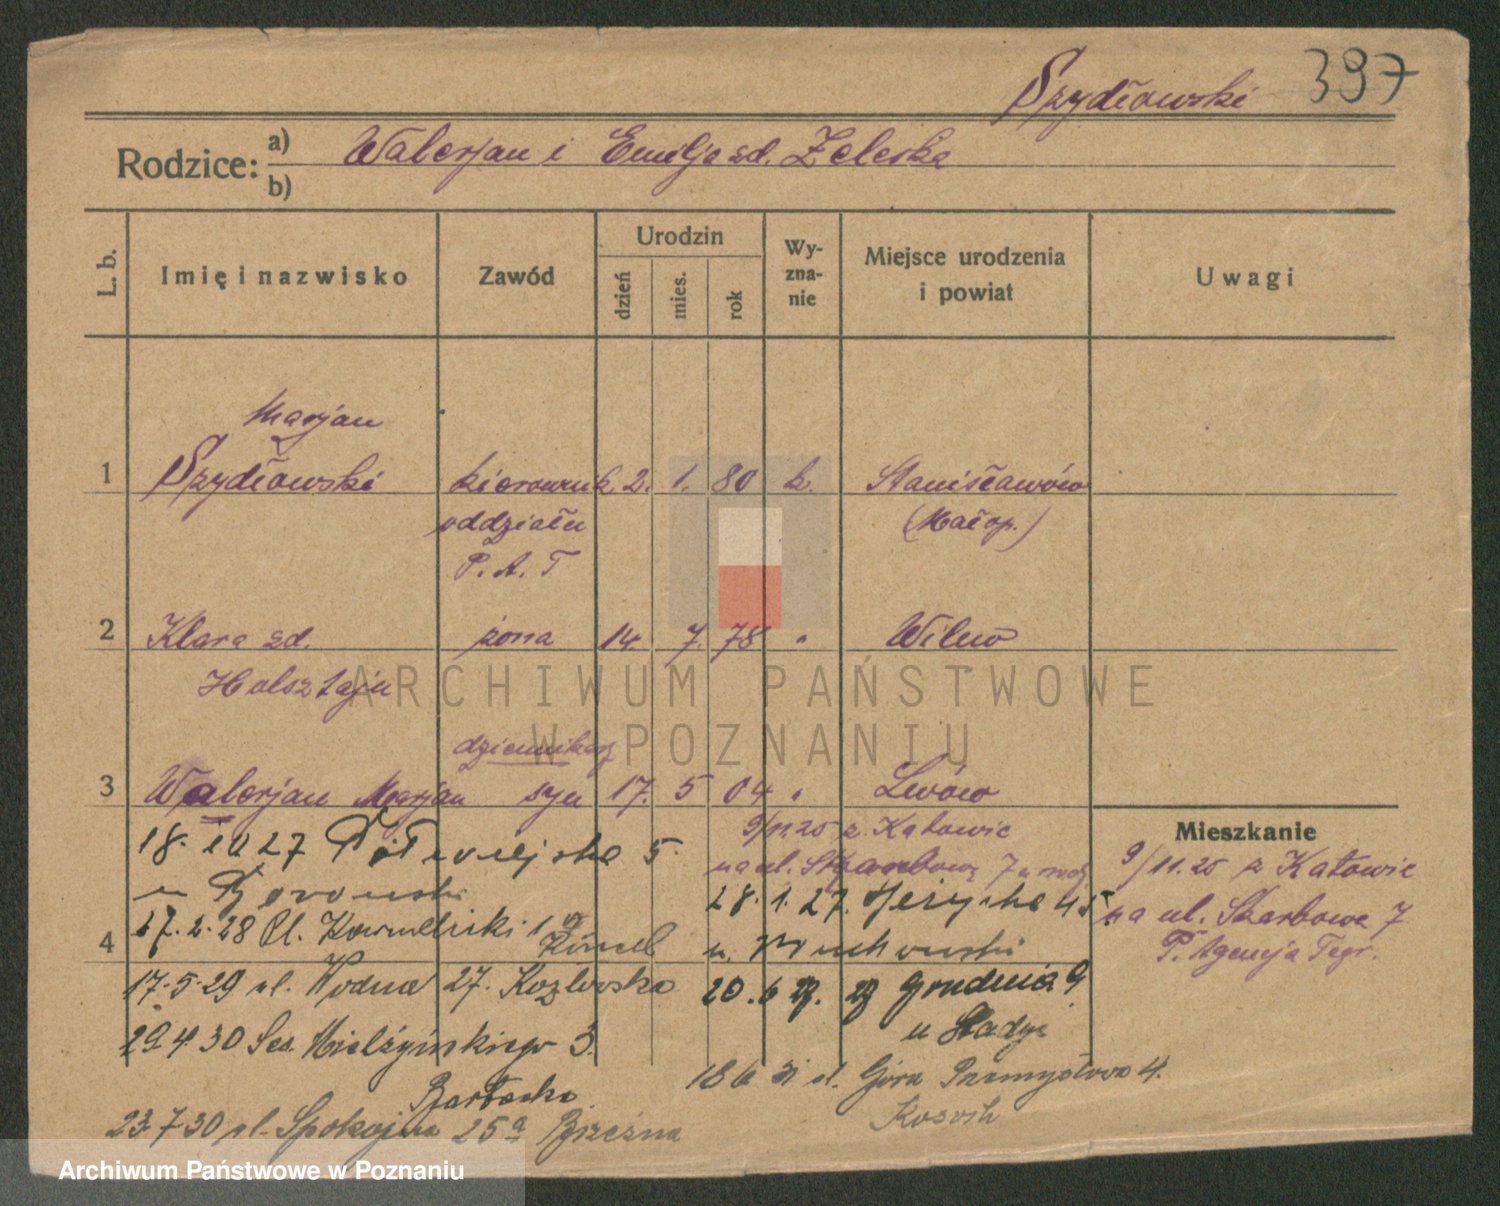 Szydłowski 397
Rodzice: a) Walerjan i Emilja zd. Zeleska
b)
L. b. Imię i nazwisko Zawód Urodzin dzień mies. rok Wy-zna-nie Miejsce urodzenia i powiat Uwagi
Marjan
1 Szydłowski kierownik 2. 1. 80 k. Stanisławów
oddziału (Małop.)
P. A. T
2 Klara zd. żona 14. 7. 78 " Wilno
Holsztejn
ARCHIWUM PAŃSTWOWE
W POZNANIU
dziennikarz
3 Walerjan Marjan syn 17. 5 04 " Lwów
Mieszkanie
18. 10 27 Półwiejska 5. 9/11.25 z Katowic
u Borowski na ul. Skarbową 7
9/11.25 z Katowic
na ul. Skarbowa 7
P. Agencja Tegr.
28. 1. 27. Jeżycka 45
u.
4 27. 2. 28 Pl. Karmelicki 1
17. 5. 29 ul. Wodna 27. Kozłowska
20. 6 27. 27 Grudnia 9
u
29. 4 30 Sew. Mielżyńskiego 3.
18 6 31 ul. Górna Przemysłowa 4.
23. 7 30 ul. Spokojna 25a
Archiwum Państwowe w Poznaniu